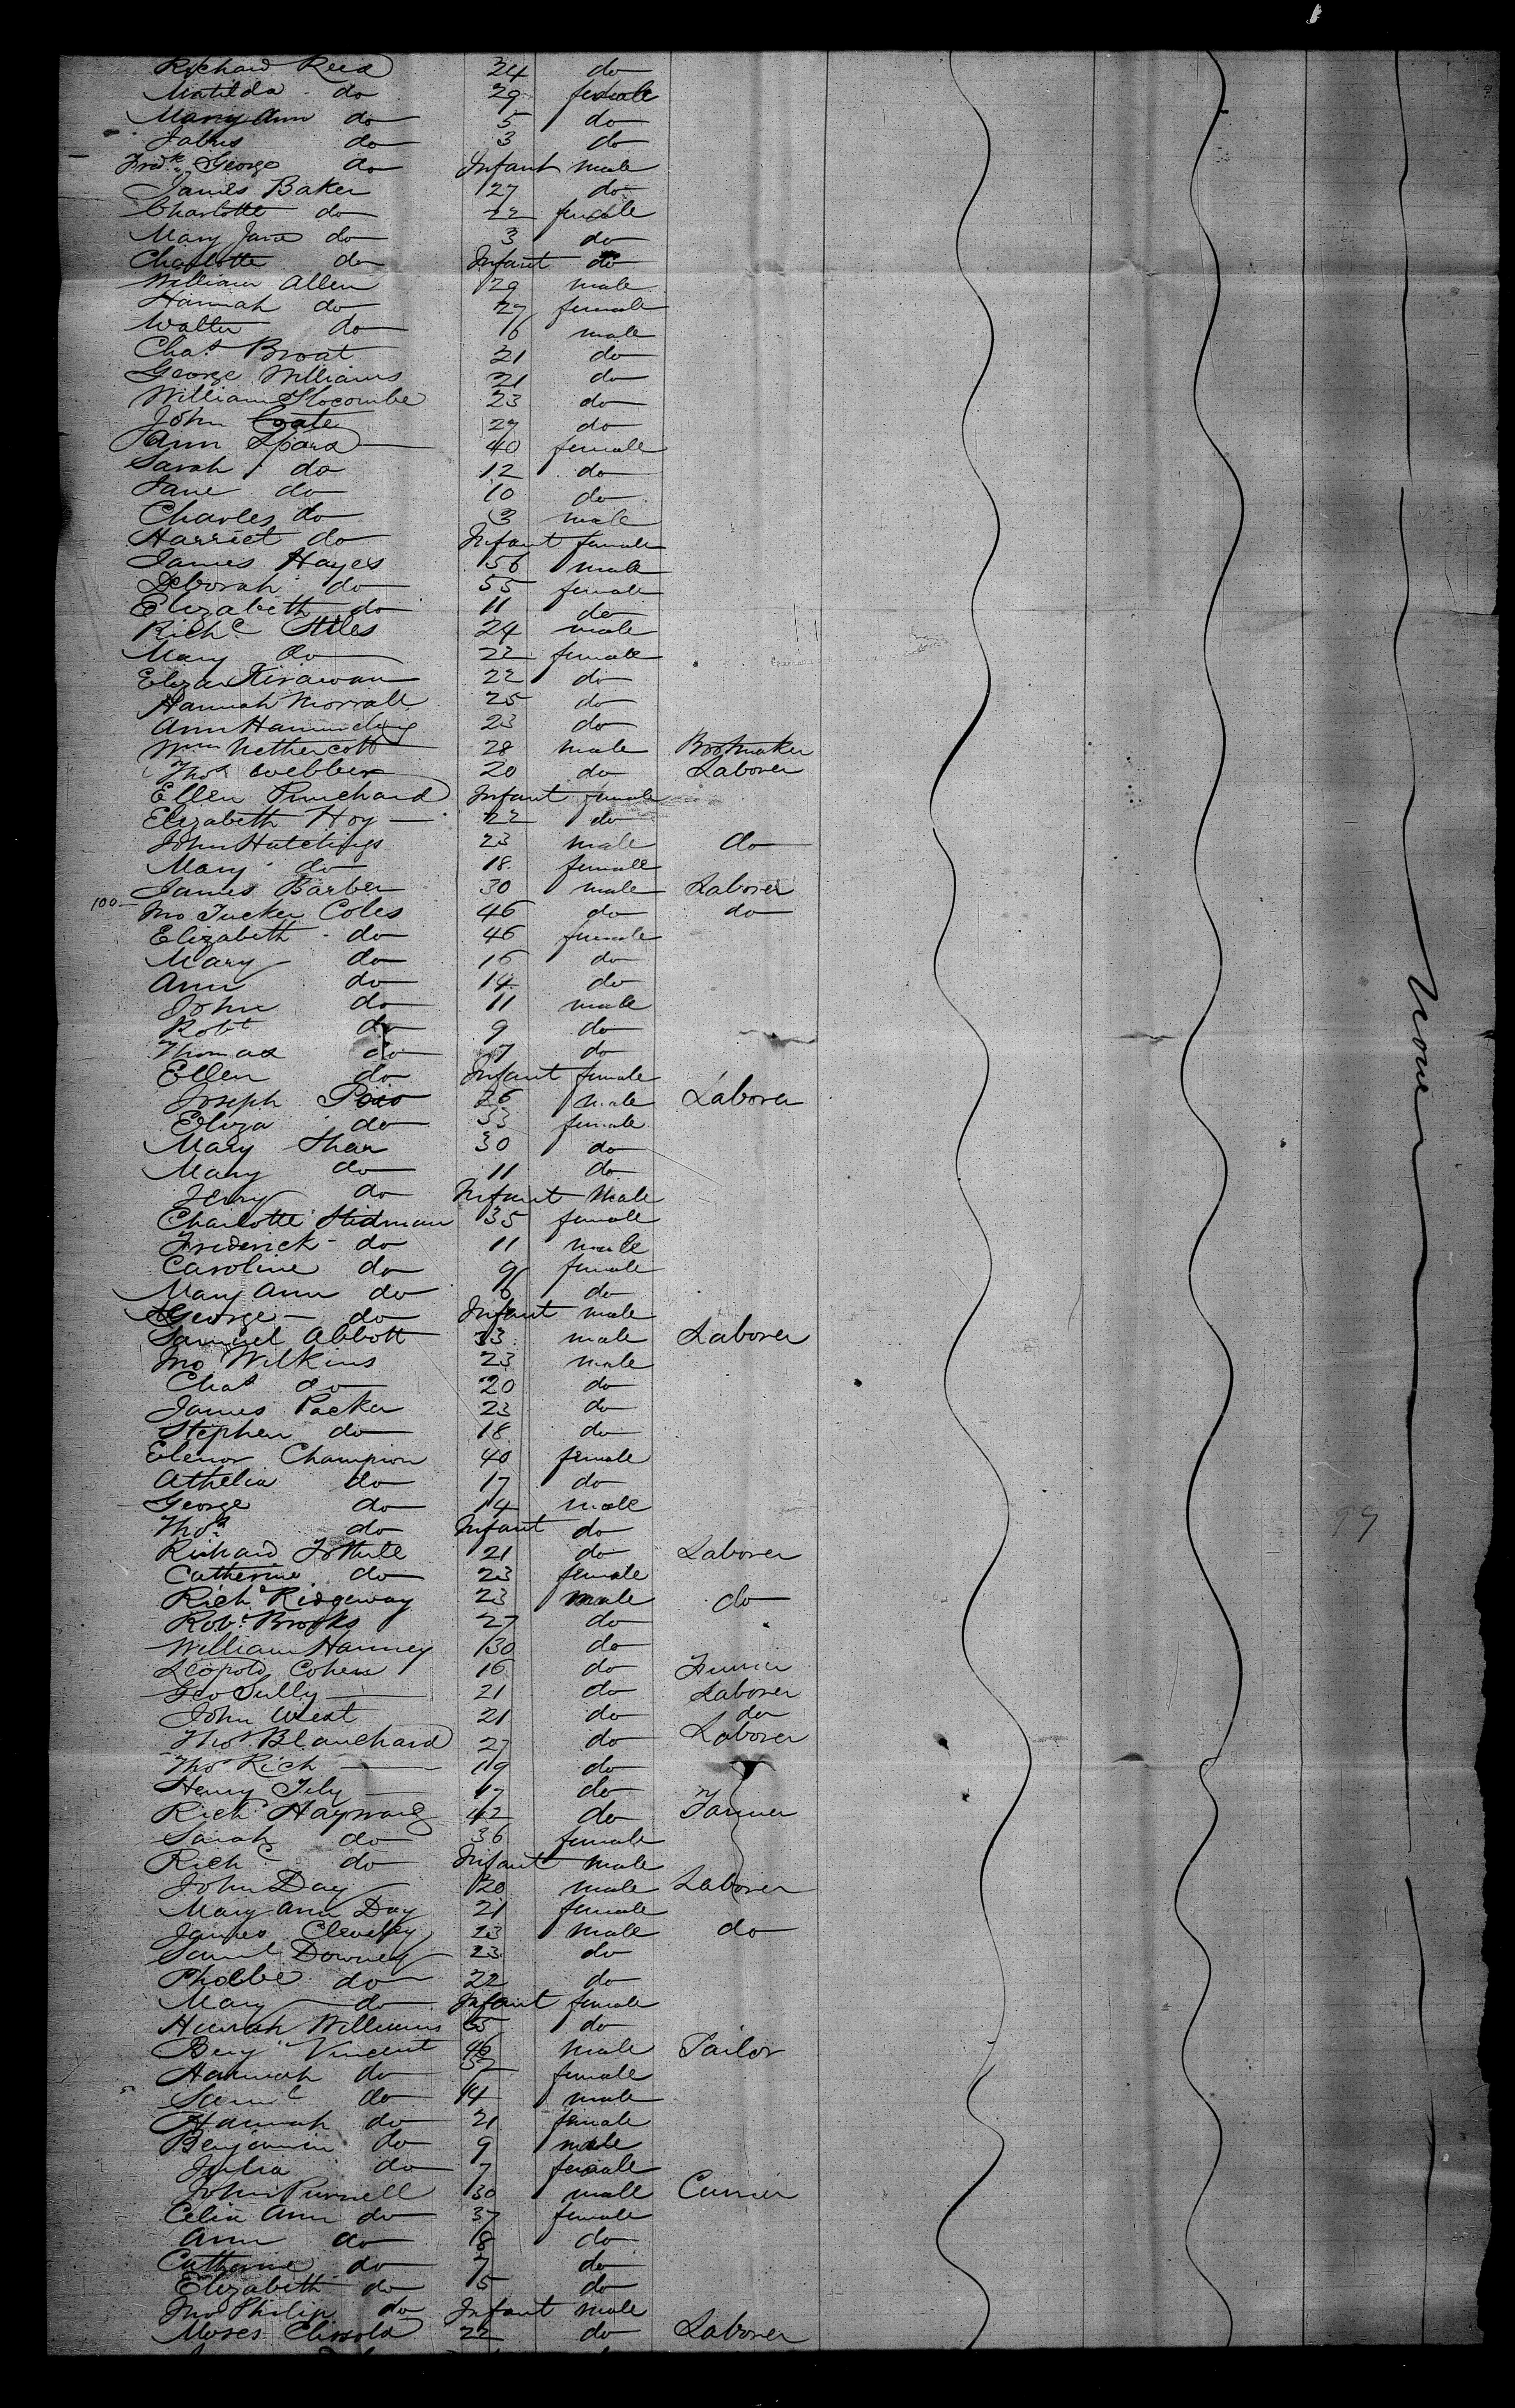 Richard Reed 24 do
Matilda do 29 female
Mary Ann do 5 do
do 3 do
Fredk George do Infant male
James Baker 27 do
Charlotte do 22 female
Mary Jane do 3 do
Charlotte do Infant do
William Allen 29 male
Hannah do 27 female
Walter do 6 male
Chas Broat 21 do
George Williams 21 do
William Slocombe 23 do
John Coate 27 do
Ann 40 female
Sarah do 12 do
Jane do 10 do
Charles do 3 male
Harriet do Infant female
James Hayes 56 male
Deborah do 55 female
Elizabeth do 11 do
Richd Stiles 24 male
Mary do 22 female
Eliza Kirawan 22 do
Hannah Morrall 25 do
Ann 23 do
Wm Nethercott 28 male Bootmaker
Thos Webber 20 do Laborer
Ellen Punchard Infant female
Elizabeth Hoy 22 do
John Hutchings 23 male do
Mary do 18 female
James Barber 30 male Laborer
100 Jno Tucker Coles 46 do do
Elizabeth do 46 female
Mary do 16 do
Ann do 14 do
John do 11 male
Robt do 9 do
Thomas do 7 do
Ellen do Infant female
Joseph 26 male Laborer
Eliza do 33 female
Mary Shar 30 do
Mary do 11 do
Jerry do Infant Male
Charlotte Stidman 35 female
Frederick do 11 male
Caroline do 9 female
Mary Ann do 6 do
George do Infant male
Samuel Abbott 33 male Laborer
Jno Wilkins 23 male
Chas do 20 do
James Packer 23 do
Stephen do 18 do
Elenor Champion 40 female
Athelia do 17 do
George do 14 male
Thos do Infant do
Richard 21 do Laborer
Catherine do 23 female
Richd Ridgeway 23 male do
Robt Brooks 27 do
William Hanney 30 do
Leopold Cohen 16 do
Geo Sully 21 do Laborer
John West 21 do do
Thos Blanchard 27 do Laborer
Thos Rich 19 do
Henry Tily 17 do
Richd Hayward 42 do Farmer
Sarah do 36 female
Richd do Infant male
John Day 20 male Laborer
Mary Ann Day 21 female
James Cleveley 23 male do
Saml Downey 23 do
Phoebe do 22 do
Mary do Infant female
Hannah Williams 65 do
Benjn Vincent 46 male Tailor
Hannah do female
Saml do 14 male
Hannah do 21 female
Benjamin do 9 male
Julia do 7 female
John Purnell 30 male Currier
Celia Ann do 37 female
Ann do 8 do
Catherine do 7 do
Elizabeth do 5 do
Jno Philip do Infant male
Moses Clissold 22 do Laborer
None
99